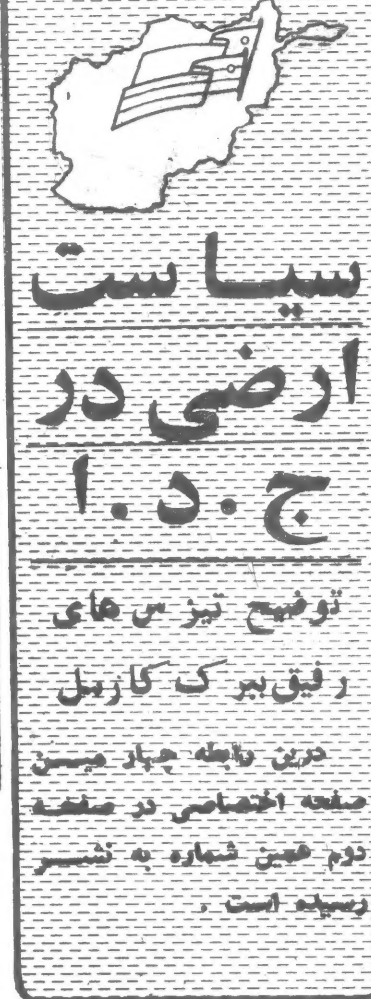 سیاست
ارضی در
ج.د.ا
توضیح تیزس های
رفیق ببرک کارمل
درین رابطه چهار مین
صفحه اختصاصی در صفحه
دوم همین شماره به نشر
رسیده است .